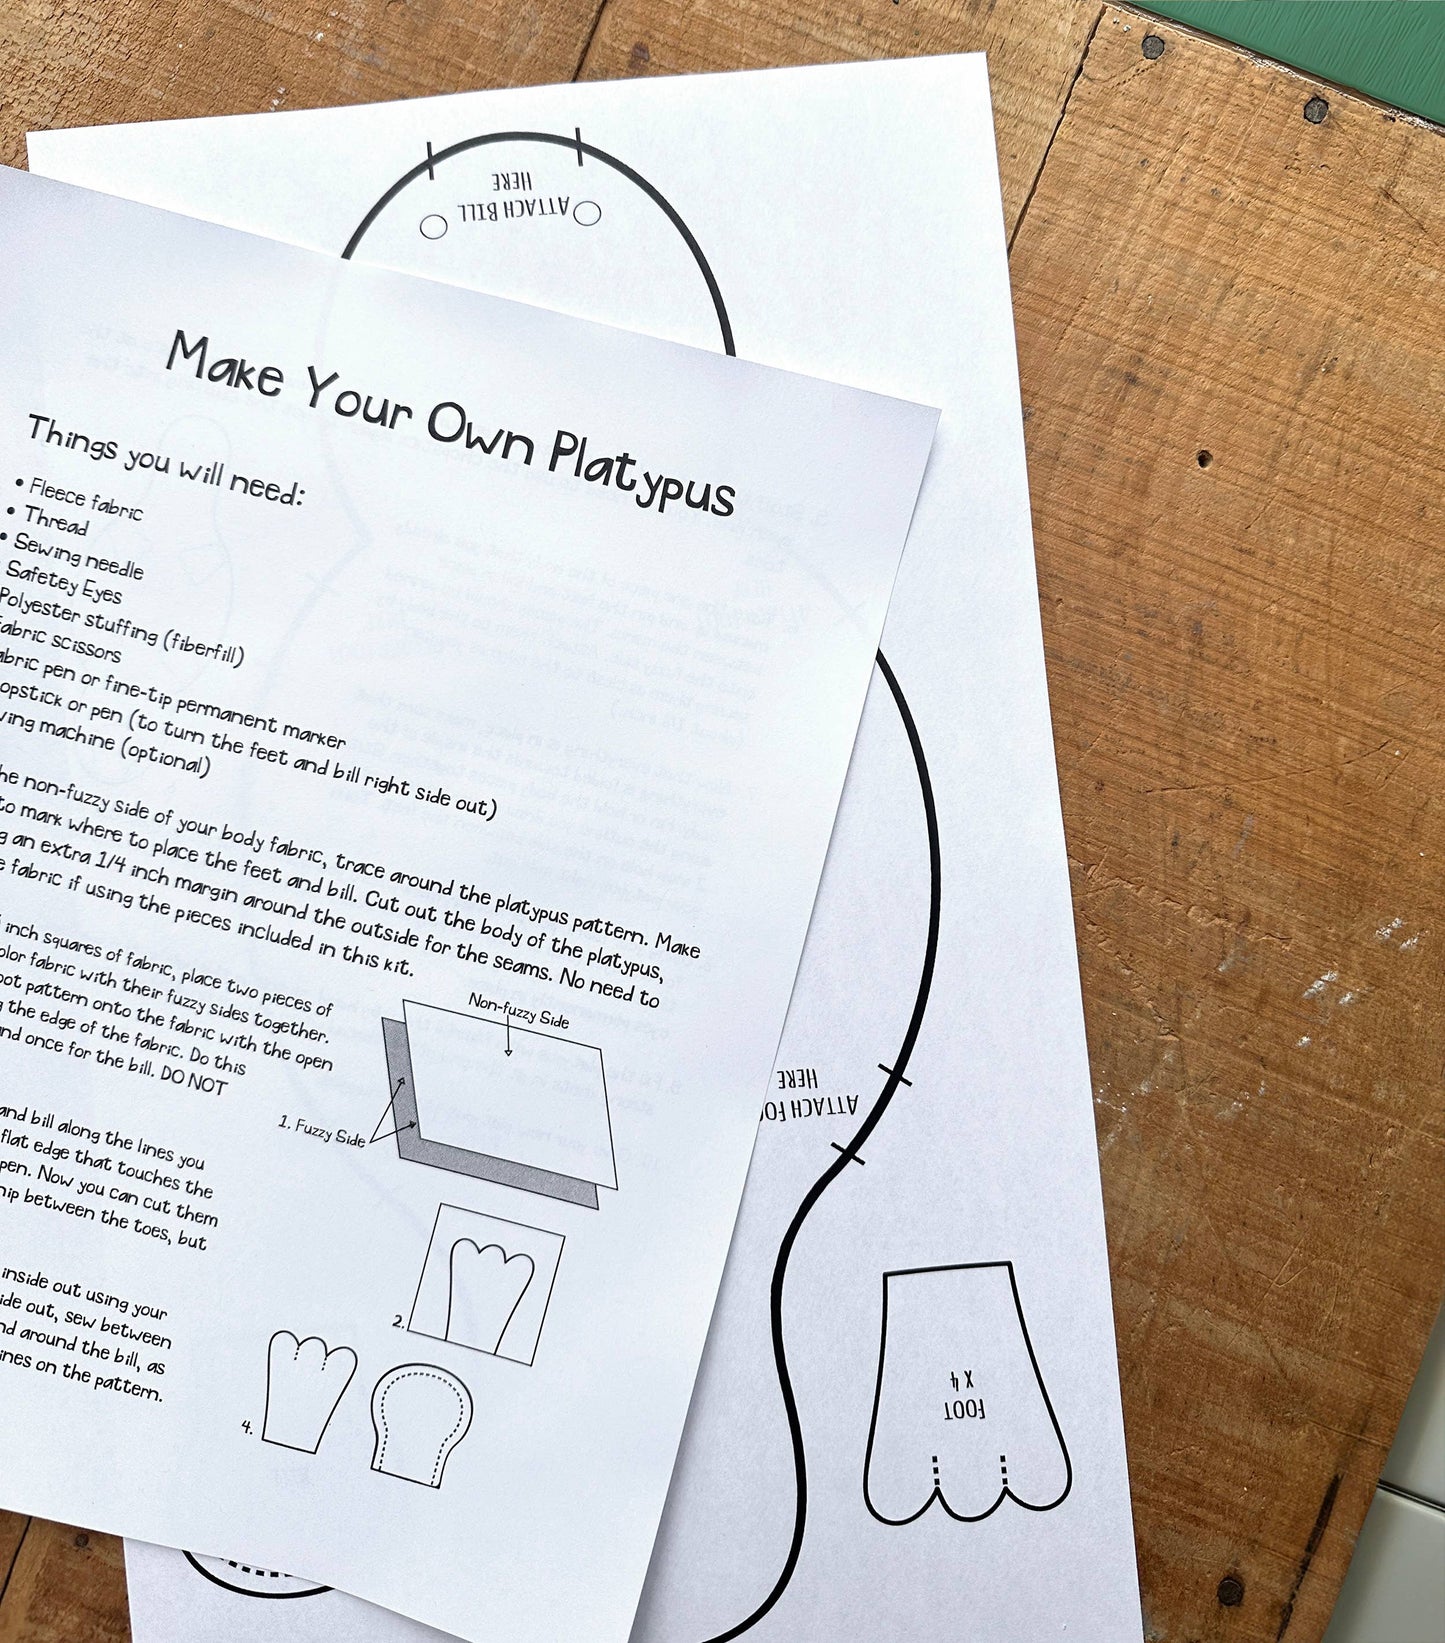 ATTACH BILL
HERE
Make Your Own Platypus
Things you will need:
• Fleece fabric
• Thread
• Sewing needle
Safetey Eyes
Polyester stuffing (fiberfill)
abric scissors
abric pen or fine-tip permanent marker
opstick or pen (to turn the feet and bill right side out)
ving machine (optional)
he non-fuzzy side of your body fabric, trace around the platypus pattern. Make
to mark where to place the feet and bill. Cut out the body of the platypus,
g an extra 1/4 inch margin around the outside for the seams. No need to
e fabric if using the pieces included in this kit.
inch squares of fabric, place two pieces of
olor fabric with their fuzzy sides together.
oot pattern onto the fabric with the open
g the edge of the fabric. Do this
nd once for the bill. DO NOT
Non-fuzzy Side
1. Fuzzy Side
and bill along the lines you
flat edge that touches the
pen. Now you can cut them
nip between the toes, but
inside out using your
ide out, sew between
nd around the bill, as
ines on the pattern.
2.
4.
ATTACH FOO
HERE
FOOT
X 4